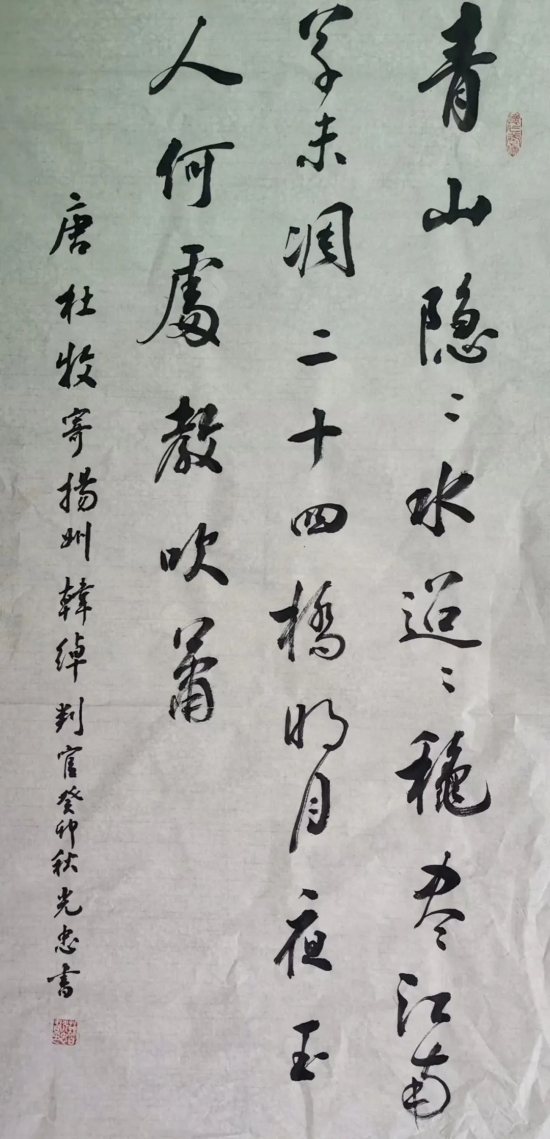 青山隐〻水迢〻穐尽江南
草未凋二十四橋明月夜玉
人何處教吹簫
唐杜牧寄揚州韓綽判官癸卯秋光忠書